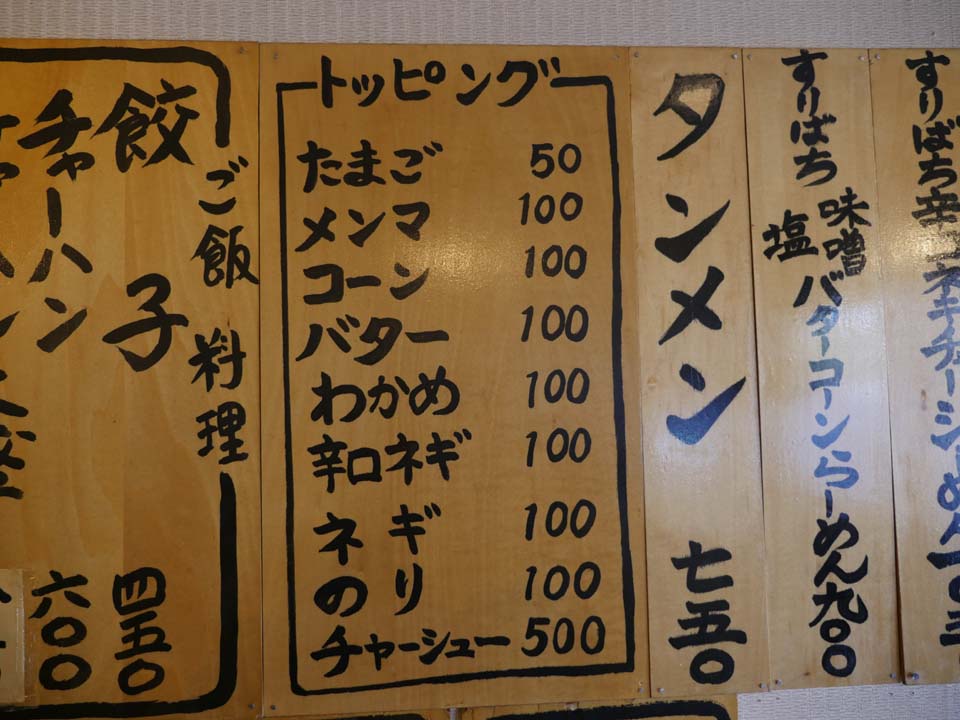 すりばち辛
すりばち 味噌 塩 バターコーンらーめん九〇〇
タンメン 七五〇
トッピング
たまご 50
メンマ 100
コーン 100
バター 100
わかめ 100
辛口ネギ 100
ネギ 100
のり 100
チャーシュー 500
ご飯 料理
餃子 四五〇
チャーハン 六〇〇